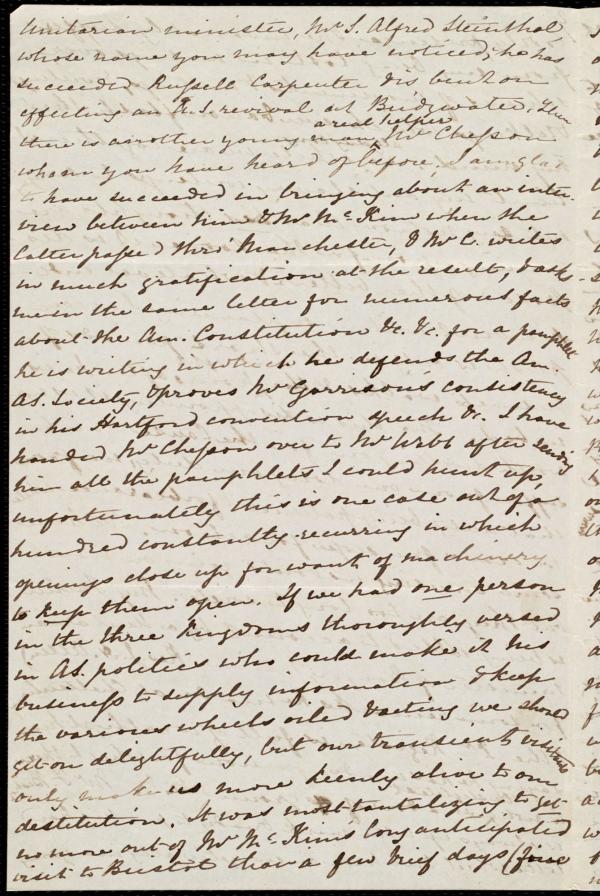 Unitarian minister, Mr S. Alfred Steinthal,
whose name you may have noticed; he has
succeeded Russell Carpenter & is bent on
effecting an A.S. revival at Bridgwater. Then
there is another young man, a real helper Mr Chesson
whom you have heard of before, I am glad
to have succeeded in bringing about an inter-
view between him & Mr McKim when the
latter passed thro' Manchester, & Mr C. writes
in much gratification at the result, & asks
me in the same letter for numerous facts
about the Am. Constitution &c. &c. for a pamphlet
he is writing in which he defends the Am.
AS. Society, & proves Mr Garrison's consistency
in his Hartford convention speech &c. I have
handed Mr Chesson over to Mr Webb after sending
him all the pamphlets I could hunt up,
unfortunately this is one case out of a
hundred constantly recurring in which
openings close up for want of machinery
to keep them open. If we had one person
in the three Kingdoms thoroughly versed
in AS. politics who could make it his
business to supply information & keep
the various wheels oiled & acting we should
get on delightfully, but our transient visitants
only make us more keenly alive to our
destitution. It was most tantalizing to get
no more out of Mr McKims long anticipated
visit to Bristol than a few brief days (